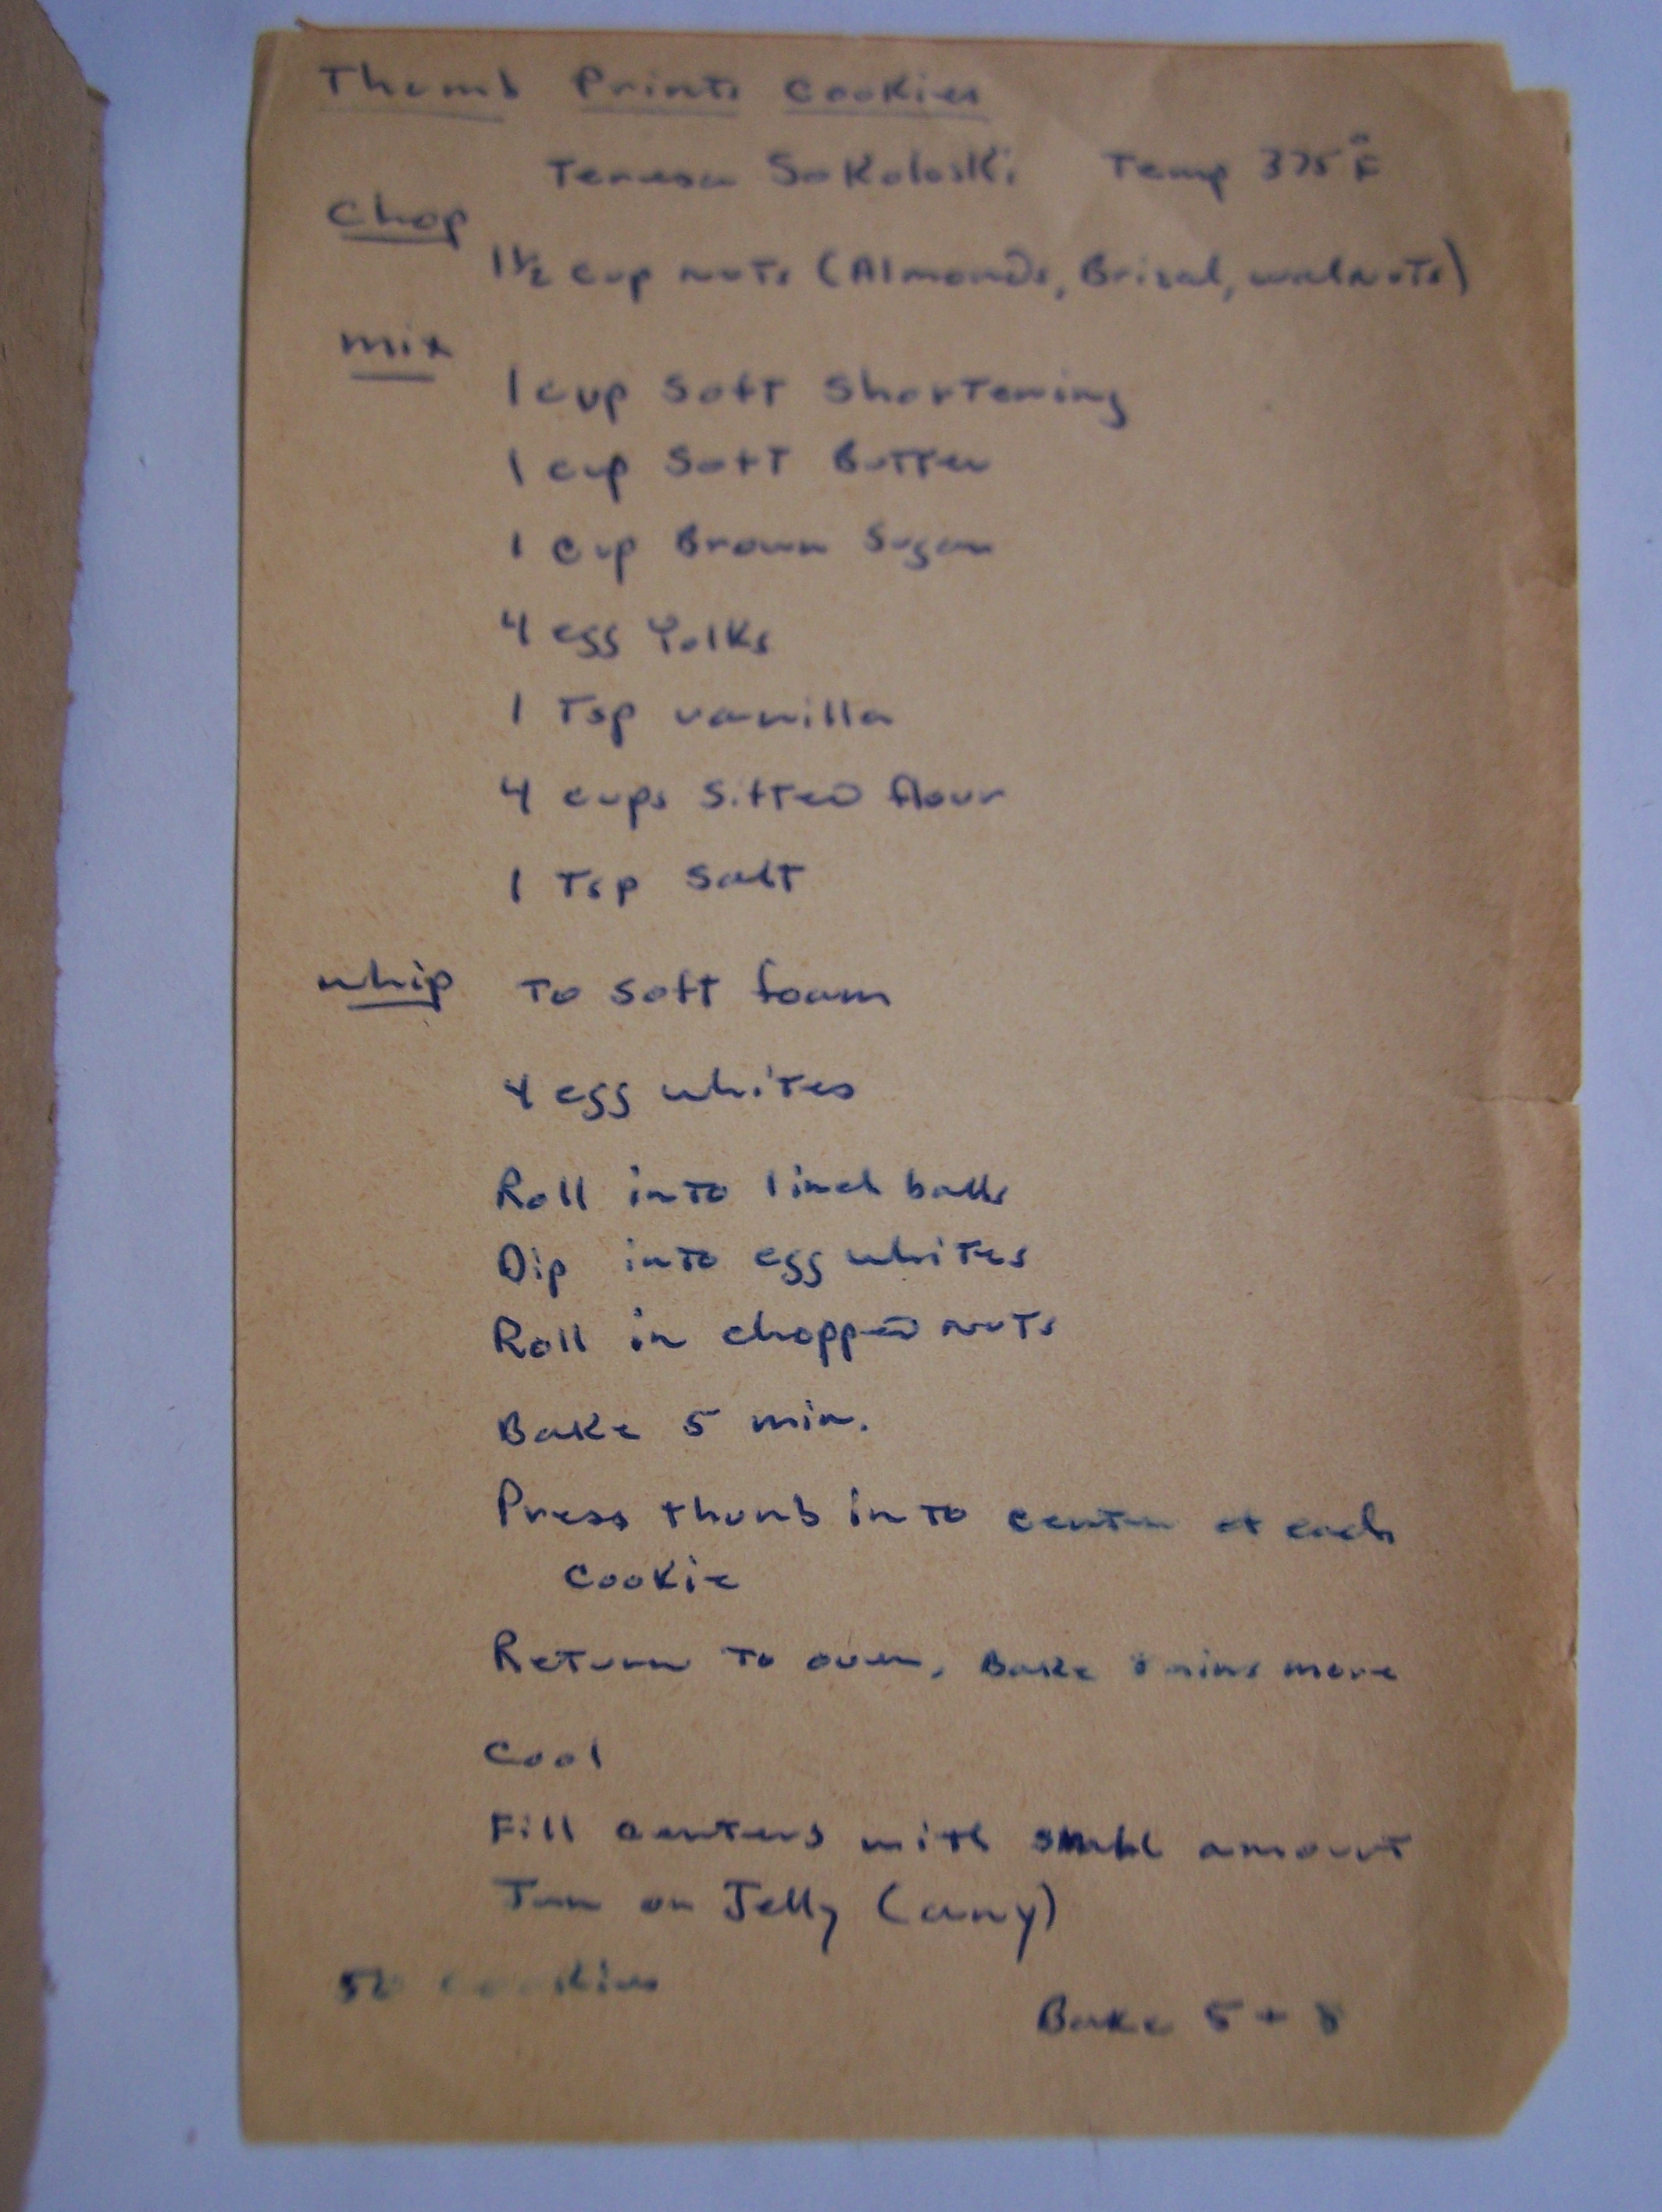 Thumb Prints Cookies
Teresa Sokoloski Temp 375°F
Chop
1½ cup nuts (Almonds, Brizal, walnuts)
mix
1 cup Soft Shortening
1 cup Soft Butter
1 cup Brown Sugar
4 egg Yolks
1 Tsp vanilla
4 cups Sifted flour
1 Tsp Salt
whip To Soft foam
4 egg whites
Roll into 1 inch balls
Dip into egg whites
Roll in chopped nuts
Bake 5 min.
Press thumb into center of each
Cookie
Return To oven, Bake 8 mins more
Cool
Fill centers with small amount
Jam or Jelly (any)
cookies
Bake 5 + 8